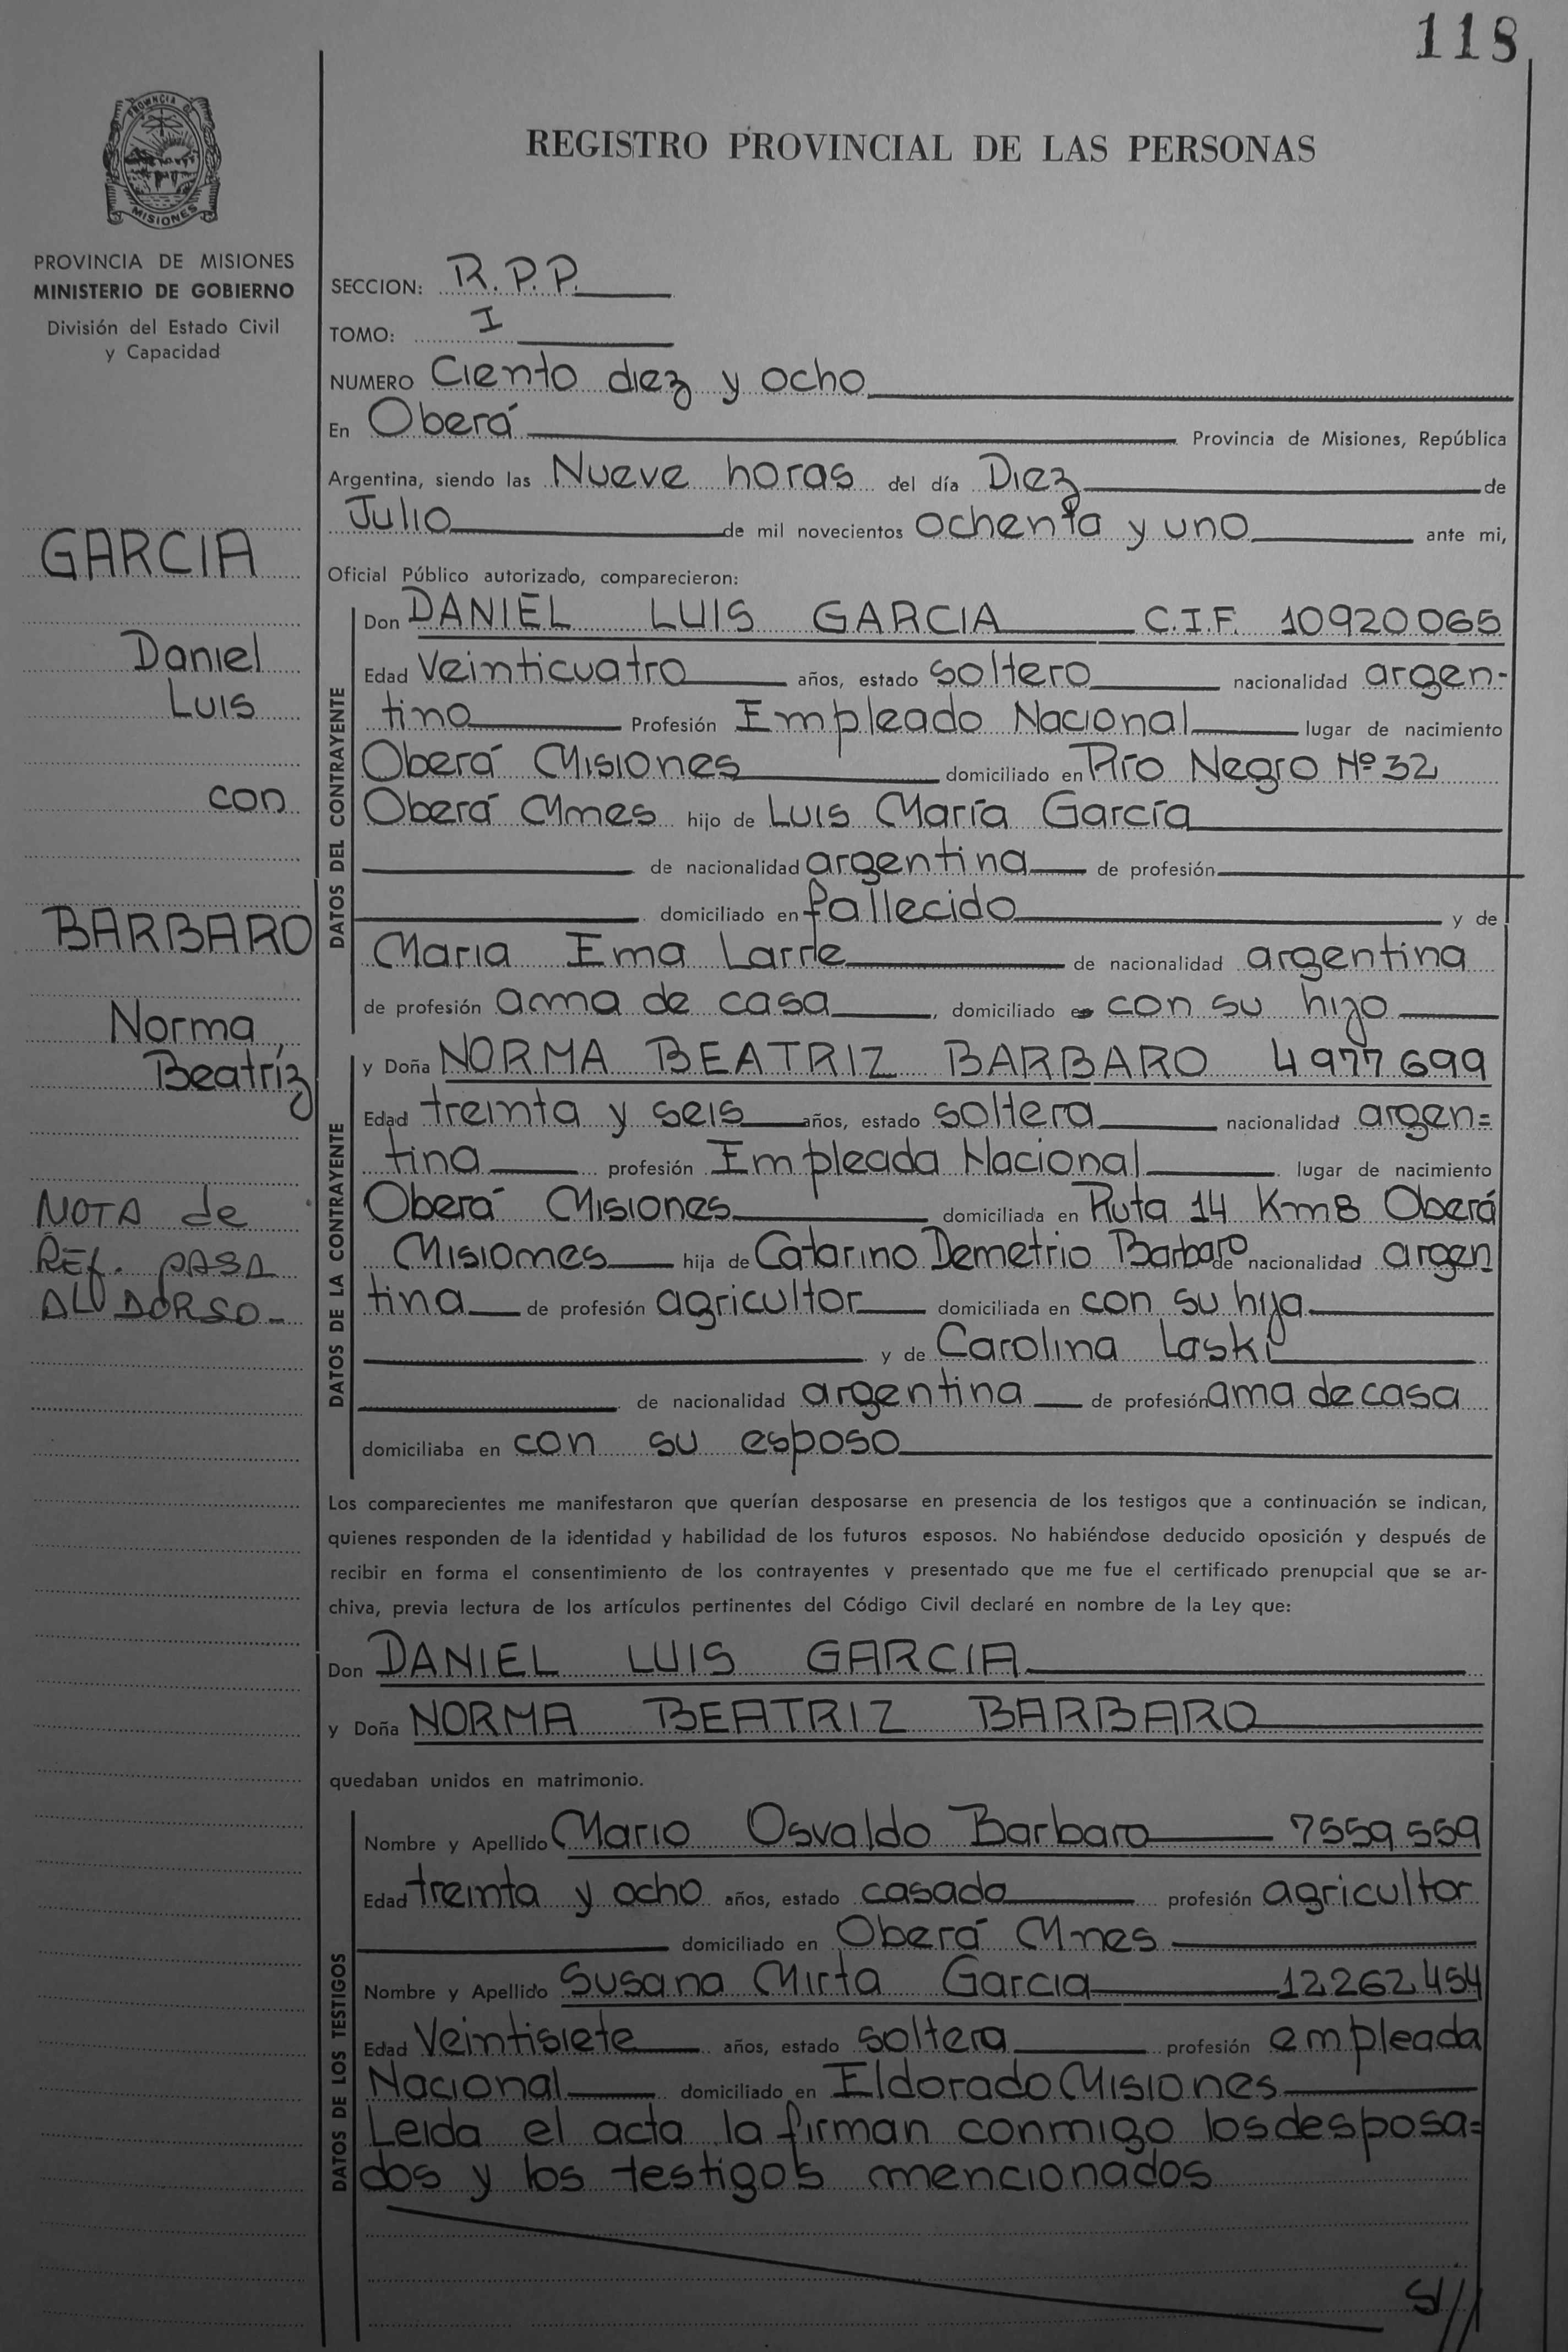 118
REGISTRO PROVINCIAL DE LAS PERSONAS
PROVINCIA DE
MISIONES
PROVINCIA DE MISIONES
MINISTERIO DE GOBIERNO
División del Estado Civil
y Capacidad
GARCIA
Daniel
Luis
con
BARBARO
Norma
Beatríz
NOTA de
REF. PASA
AL DORSO-
SECCION: R.P.P.
TOMO: I
NUMERO Ciento diez y ocho
En Oberá Provincia de Misiones, República
Argentina, siendo las Nueve horas del día Diez de
Julio de mil novecientos ochenta y uno ante mi,
Oficial Público autorizado, comparecieron:
DATOS DEL CONTRAYENTE
Don DANIEL LUIS GARCIA C.I.F. 10920065
Edad Veinticuatro años, estado soltero nacionalidad argen-
tino Profesión Empleado Nacional lugar de nacimiento
Oberá Misiones domiciliado en Río Negro Nº 32
Oberá Mnes hijo de Luis María García
de nacionalidad argentina de profesión
domiciliado en fallecido y de
Maria Ema Larre de nacionalidad argentina
de profesión ama de casa, domiciliado en con su hijo
DATOS DE LA CONTRAYENTE
y Doña NORMA BEATRIZ BARBARO 4977699
Edad treinta y seis años, estado soltera nacionalidad argen=
tina profesión Empleada Nacional lugar de nacimiento
Oberá Misiones domiciliada en Ruta 14 Km8 Oberá
Misiones hija de Catarino Demetrio Barbaro de nacionalidad argen
tina de profesión agricultor domiciliada en con su hija
y de Carolina Laski
de nacionalidad argentina de profesión ama de casa
domiciliaba en con su esposo
Los comparecientes me manifestaron que querían desposarse en presencia de los testigos que a continuación se indican,
quienes responden de la identidad y habilidad de los futuros esposos. No habiéndose deducido oposición y después de
recibir en forma el consentimiento de los contrayentes y presentado que me fue el certificado prenupcial que se ar-
chiva, previa lectura de los artículos pertinentes del Código Civil declaré en nombre de la Ley que:
Don DANIEL LUIS GARCIA
y Doña NORMA BEATRIZ BARBARO
quedaban unidos en matrimonio.
DATOS DE LOS TESTIGOS
Nombre y Apellido Mario Osvaldo Barbaro 7559559
Edad treinta y ocho años, estado casado profesión agricultor
domiciliado en Oberá Mnes
Nombre y Apellido Susana Mirta Garcia 12262454
Edad Veintisiete años, estado soltera profesión empleada
Nacional domiciliado en Eldorado Misiones
Leida el acta la firman conmigo los desposa=
dos y los testigos mencionados
S///